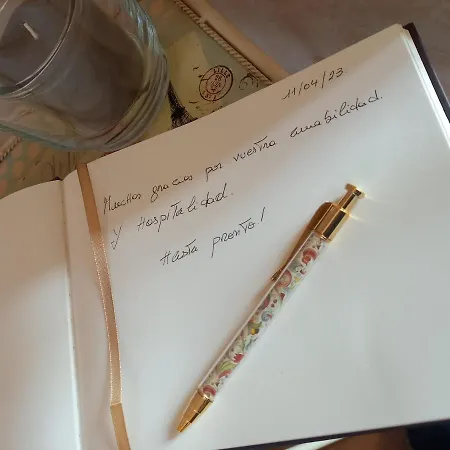 11/04/23.
Muchas gracias por vuestra amabilidad.
y Hospitalidad.
Hasta pronto!